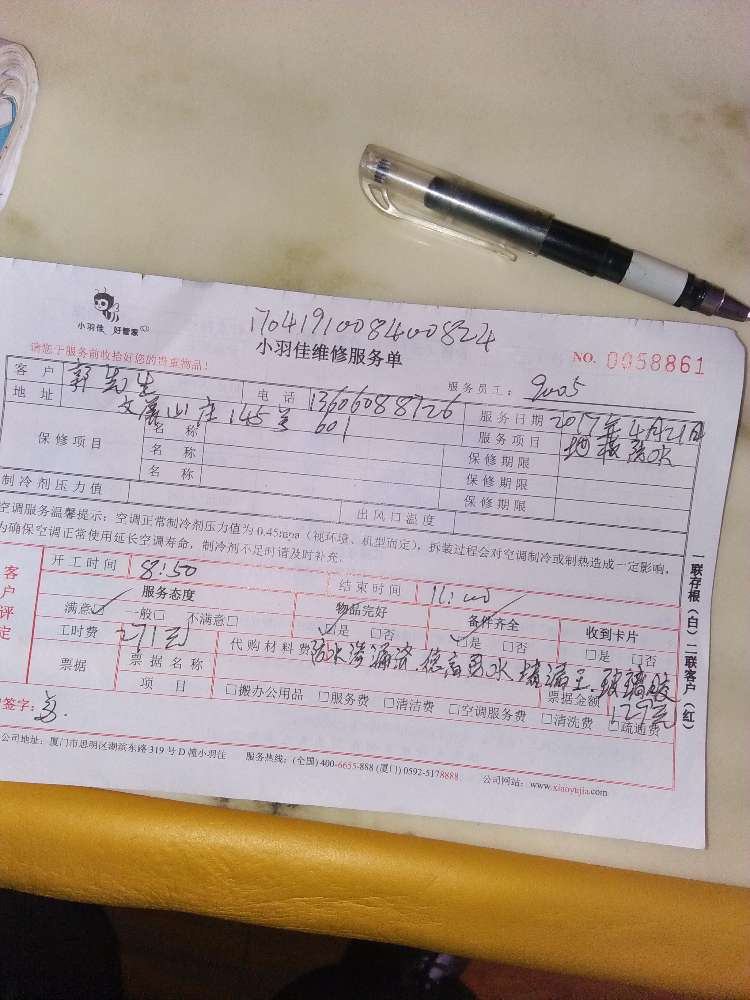 小羽佳 好管家
170419100840008 24
小羽佳维修服务单
NO. 0058861
请您于服务前收拾好您的贵重物品!
服务员工: 9005
客户 郭先生 电话 13606088726 服务日期 2017年4月21日
地址 文屏山庄145号601 服务项目 地漏漏水
保修项目 名称 保修期限
名称 保修期限
名称 保修期限
制冷剂压力值 出风口温度
空调服务温馨提示:空调正常制冷剂压力值为0.45mpa(视环境、机型而定),拆装过程会对空调制冷或制热造成一定影响,
为确保空调正常使用延长空调寿命,制冷剂不足时请及时补充.
客户评定
开工时间 8:50 结束时间 11:00
服务态度 物品完好 备件齐全 收到卡片
满意☑ 一般□ 不满意□ ☑是 □否 ☑是 □否 □是 □否
工时费 271元 代购材料费 防水渗漏济.德高防水.堵漏王.玻璃胶
票据 票据名称 票据金额 129元
项目 □搬办公用品 □服务费 □清洁费 □空调服务费 □清洗费 □疏通费
签字:
公司地址:厦门市思明区湖滨东路319号D幢小羽佳 服务热线:(全国)400-6655-888 (厦门)0592-5178888 公司网站:www.xiaoyujia.com
一联存根(白)二联客户(红)